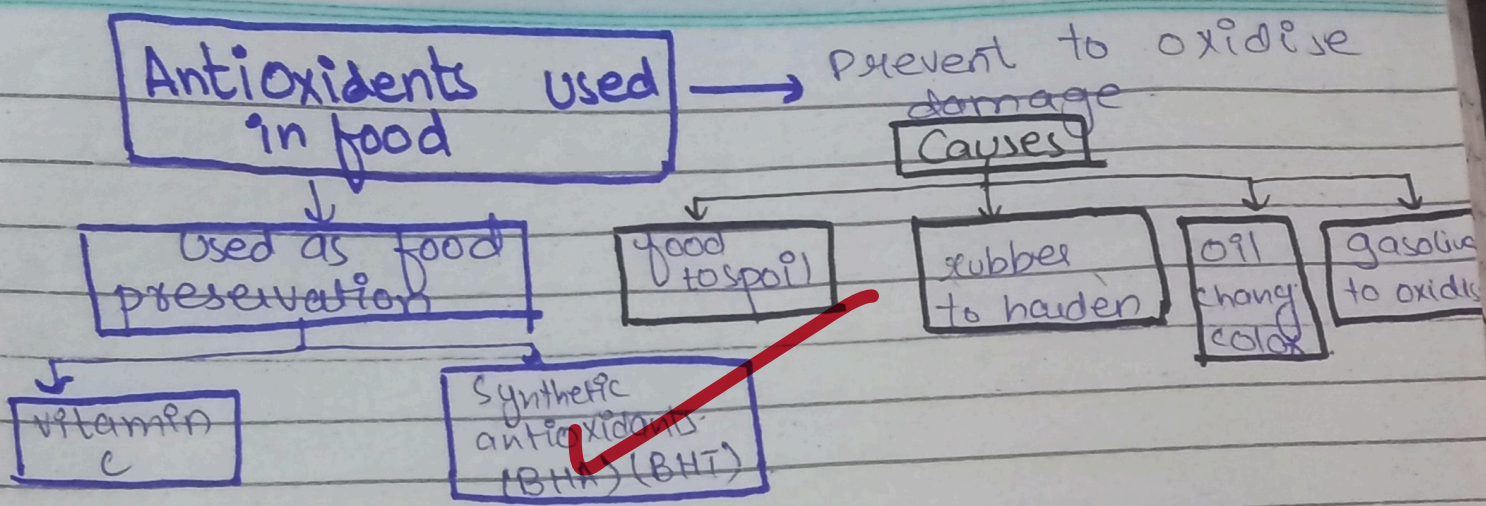 Antioxidents used
in food
Prevent to oxidise
damage
Causes
used as food
preservation
food
to spoil
rubber
to harden
oil
chang
color
gasoline
to oxidis
vitamin
C
Synthetic
antioxidants
(BHA) (BHT)